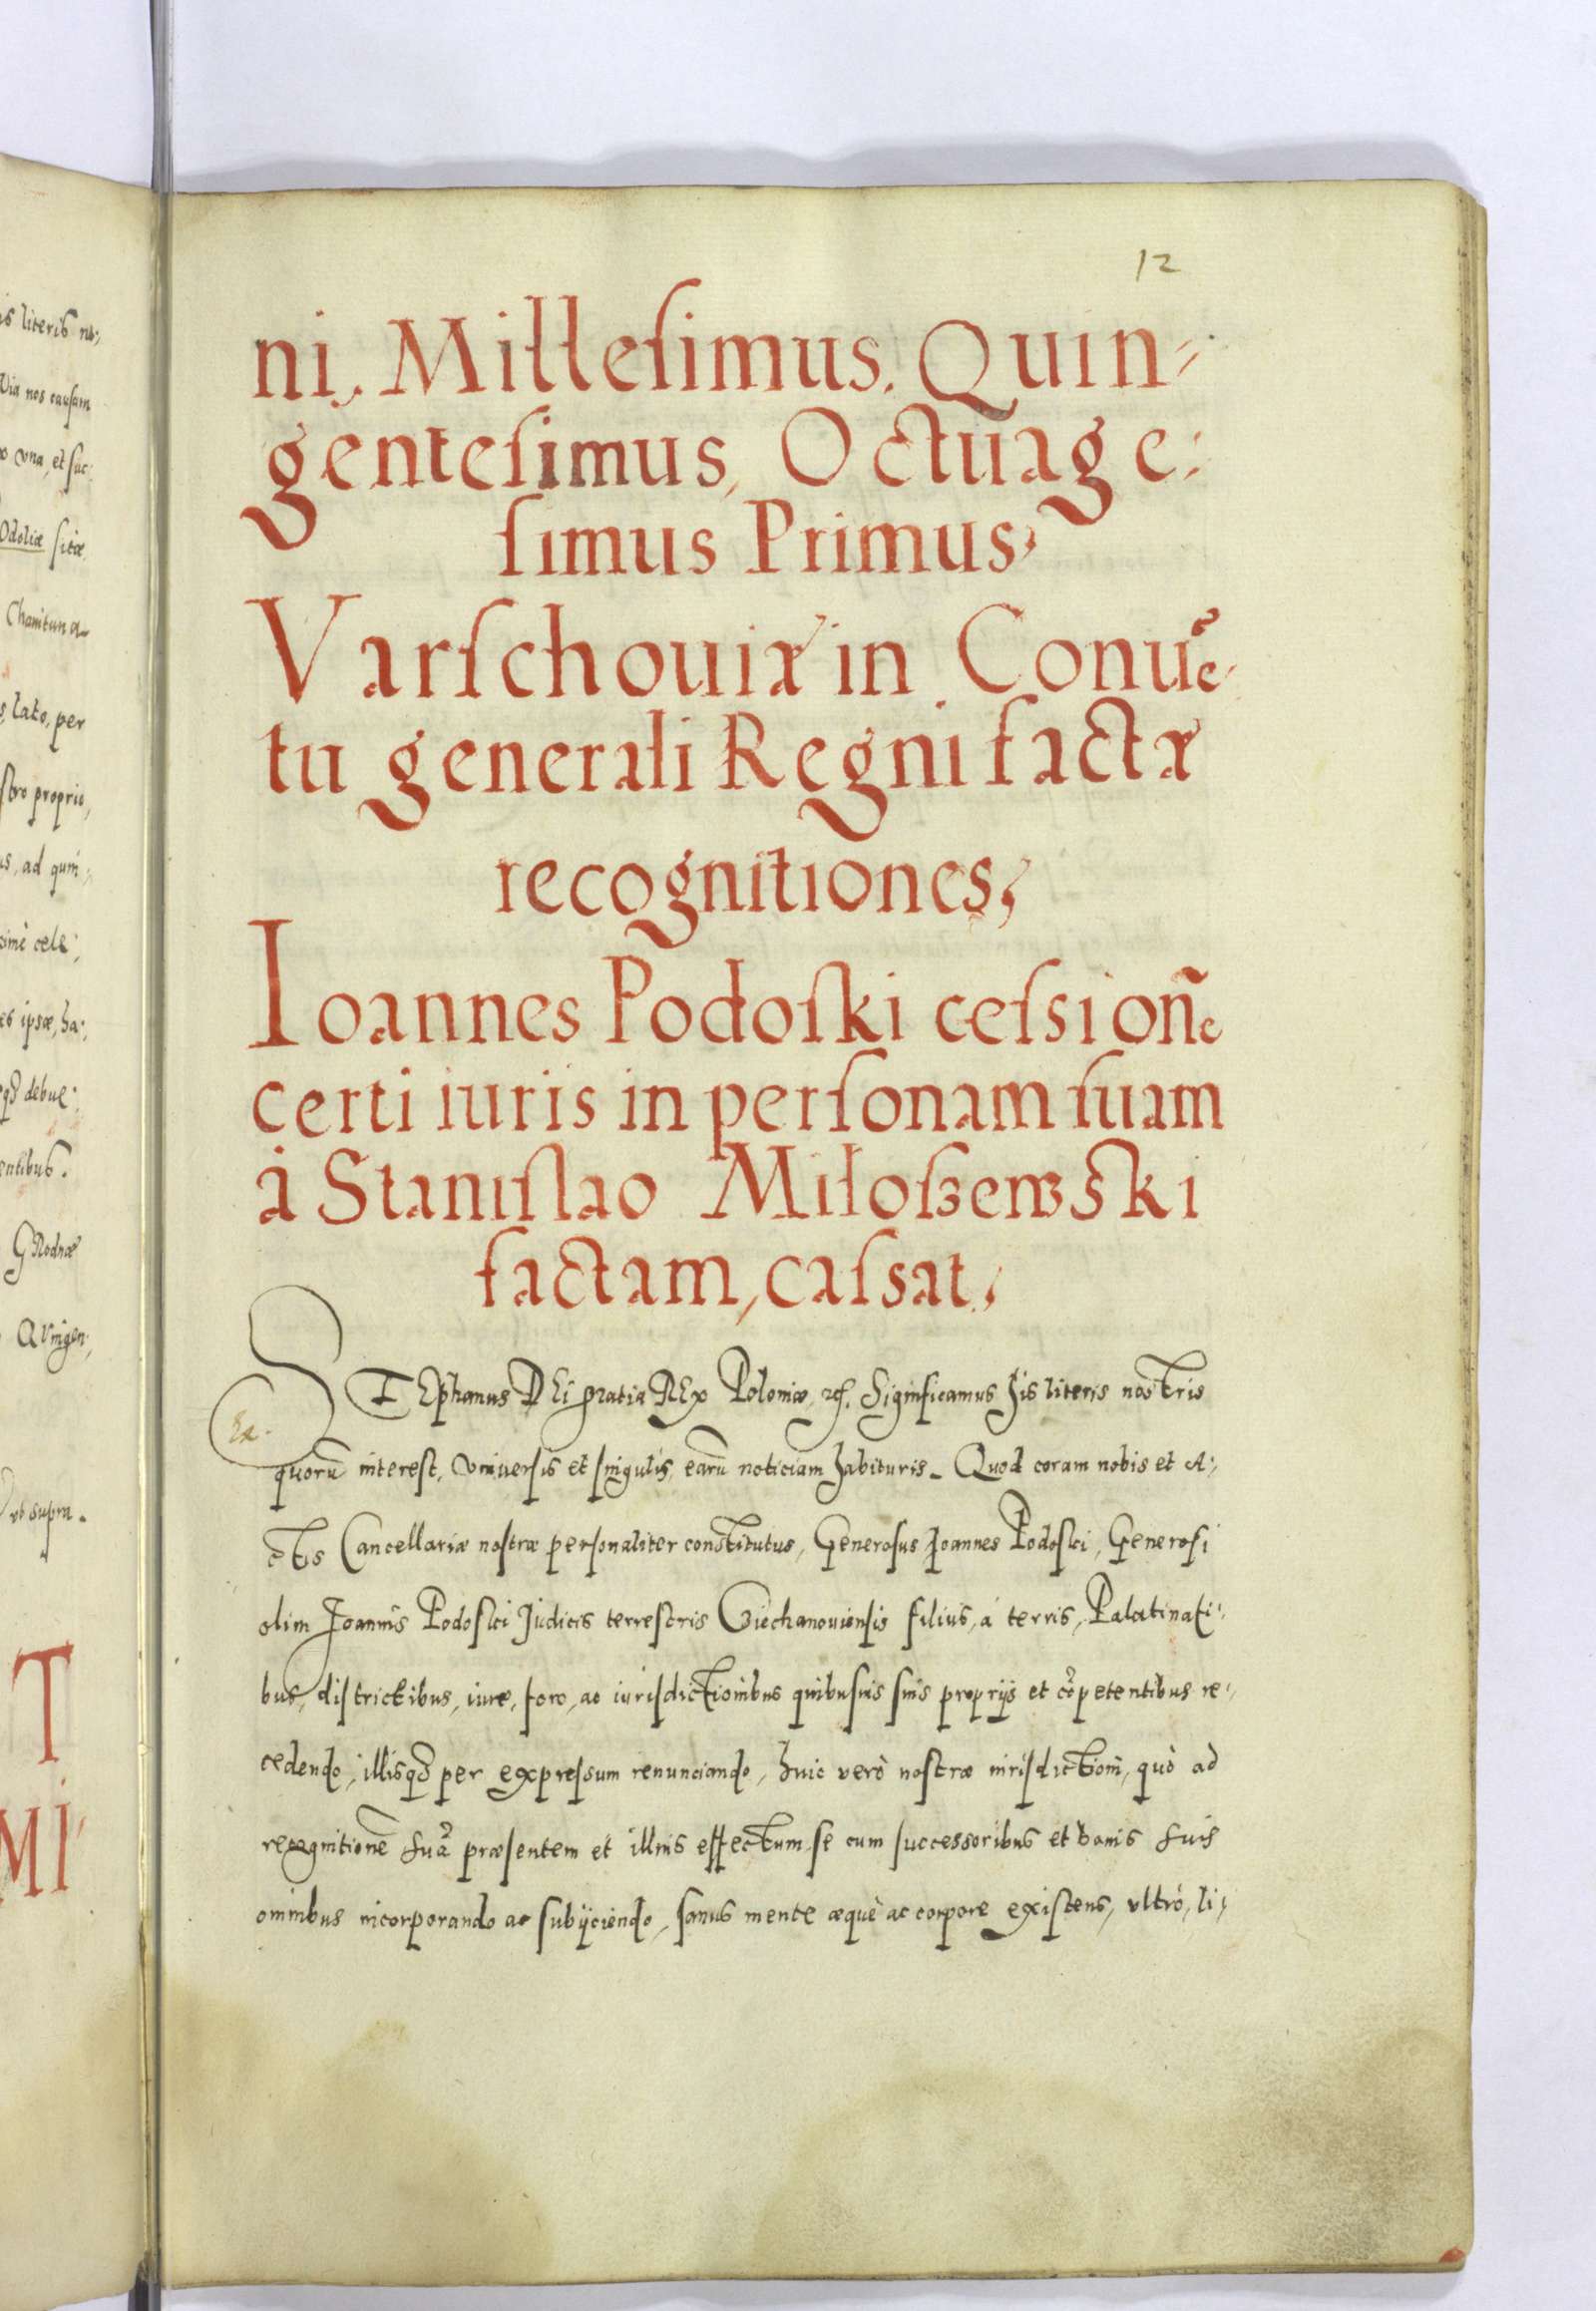 is literis no,
Via nos causam
o vna, et suc:
Odoliæ sitæ
Chanitun a
s, lato, per
stro proprio,
us, ad quin
simè cele:
es ipsæ, ha:
debue:
entibus.
GRodnæ
Quingen:
vt supra.
T
MI
12
ni, Millesimus. Quin-
gentesimus, Octuage:
simus Primus,
Varschouiæ in Conuē-
tu generali Regni factæ
recognitiones,
Ioannes Podoski cessionē
certi iuris in personam suam
à Stanislao Miloszewski
factam, cassat.
Ex.
STEphanus DEi gratia REx Poloniæ, etc. Significamus his literis nostris
quorū interest, vniuersis et singulis, earū noticiam habituris. Quod coram nobis et A:
ctis Cancellariæ nostræ personaliter constitutus, Generosus Joannes Podoski, Generosi
olim Joannis Podoski Judicis terrestris Ciechanouiensis filius, à terris, Palatinati:
bus, districtibus, iure, foro, ac iurisdictionibus quibusuis suis proprijs et cōpetentibus re:
cedendo, illisq3 per expressum renunciando, huic verò nostræ iurisdictioni, quò ad
recognitionē suā præsentem et illius effectum se cum successoribus et bonis suis
omnibus incorporando ac subijciendo, sanus mente æquè ac corpore existens, vltrò, li,